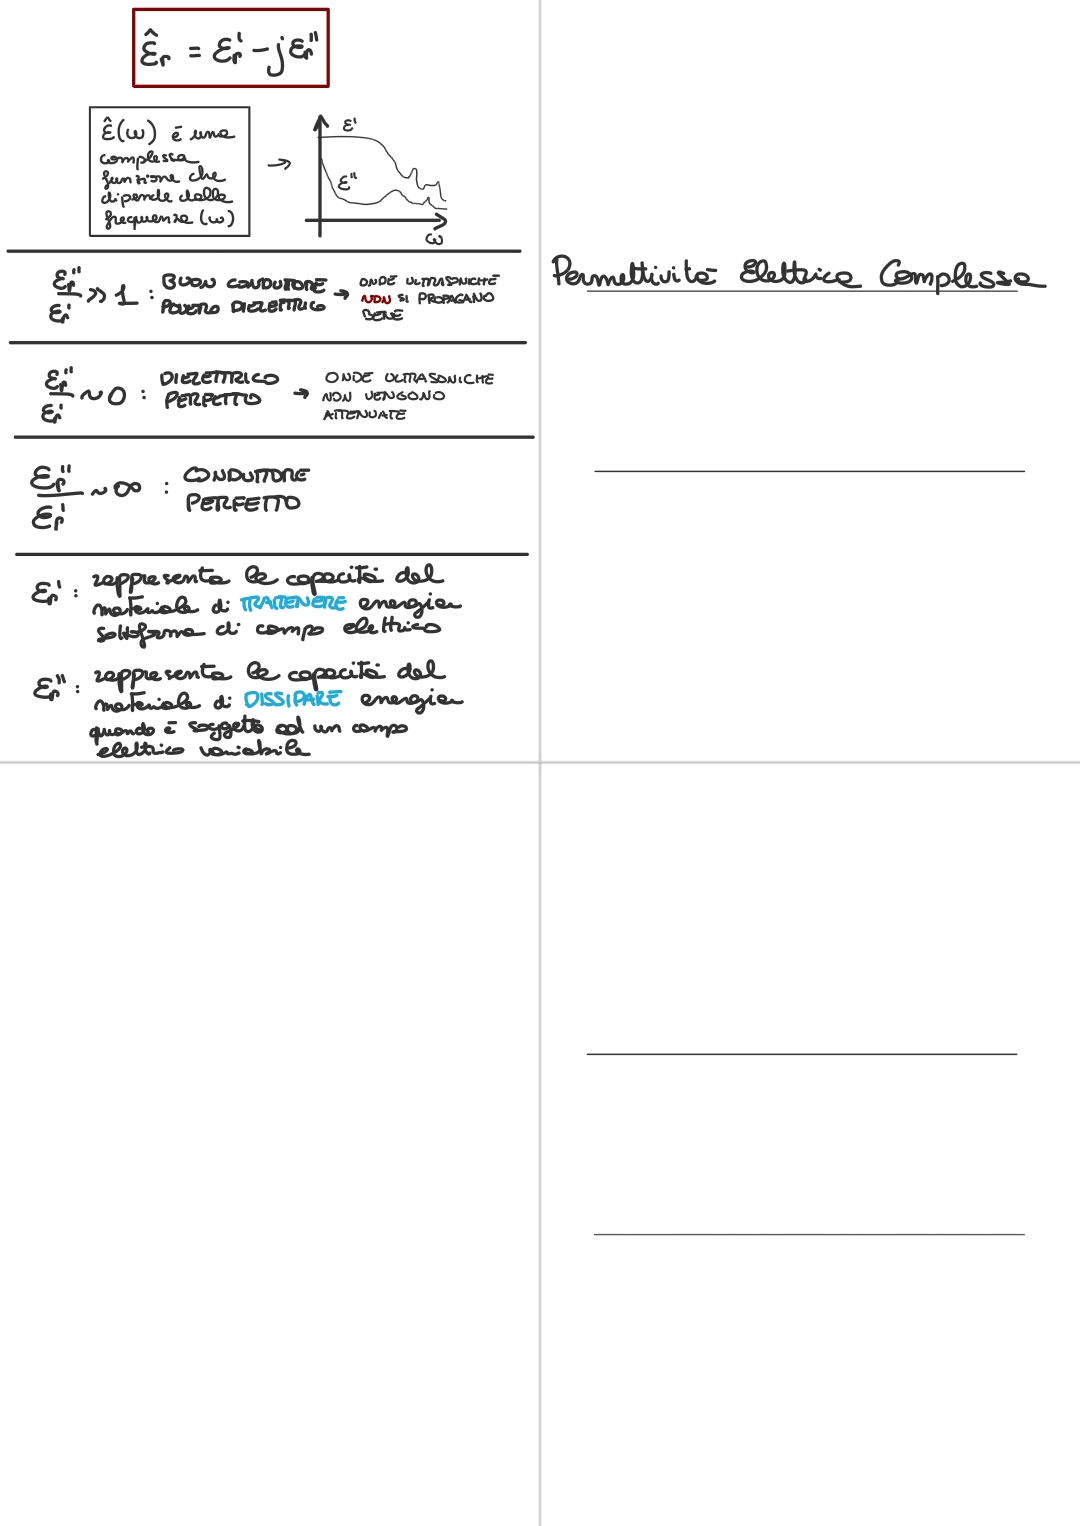 ε̂r = εr' - jεr''
ε̂(ω) è una
complessa
funzione che
dipende dalla
frequenza (ω)
→
ε'
ε''
ω
εr''/εr' >> 1 : BUON CONDUTTORE
POVERO DIELETTRICO
→ ONDE ULTRASONICHE
NON SI PROPAGANO
BENE
εr''/εr' ~ 0 : DIELETTRICO
PERFETTO
→ ONDE ULTRASONICHE
NON VENGONO
ATTENUATE
εr''/εr' ~ ∞ : CONDUTTORE
PERFETTO
εr' : rappresenta la capacità del
materiale di TRATTENERE energia
sottoforma di campo elettrico
εr'' : rappresenta la capacità del
materiale di DISSIPARE energia
quando è soggetto ad un campo
elettrico variabile
Permettività Elettrica Complessa